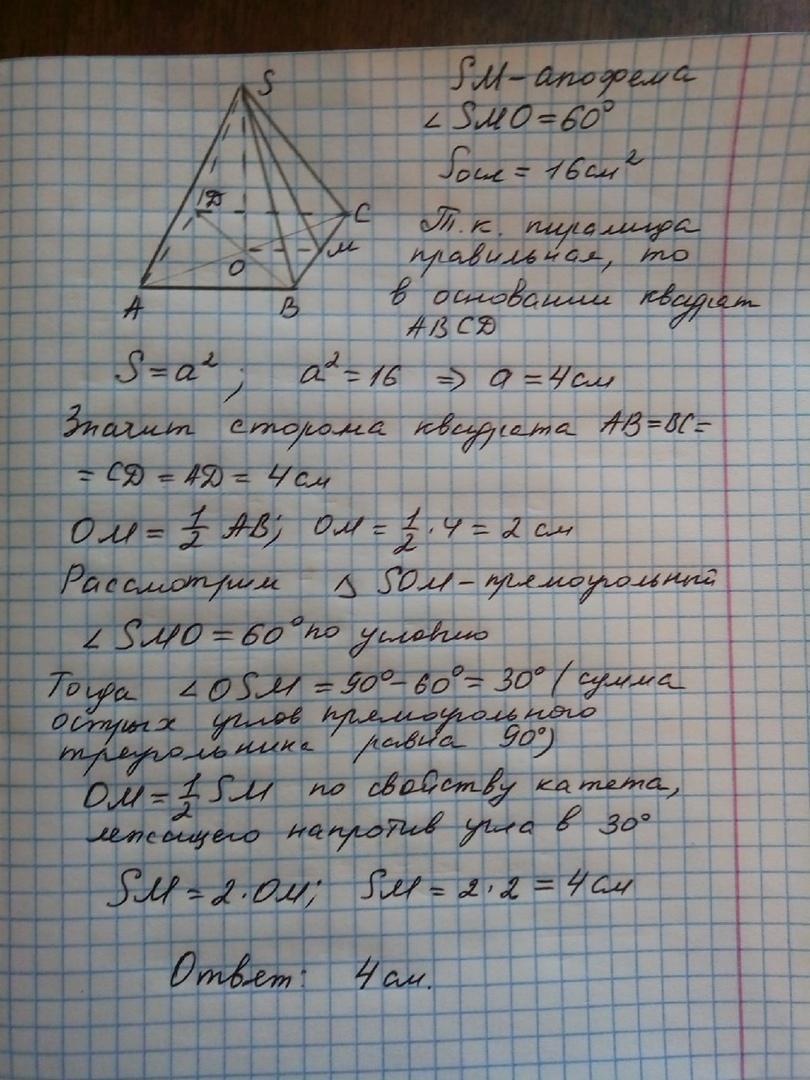 S
D
C
O
M
A
B
SM - апофема
∠ SMO = 60°
Sосн = 16 см²
Т.к. пирамида
правильная, то
в основании квадрат
ABCD
S = a² ; a² = 16 ⇒ a = 4 см
Значит сторона квадрата AB = BC =
= CD = AD = 4 см
OM = 1/2 AB; OM = 1/2 · 4 = 2 см
Рассмотрим △ SOM - прямоугольный
∠ SMO = 60° по условию
Тогда ∠ OSM = 90° - 60° = 30° (сумма
острых углов прямоугольного
треугольника равна 90°)
OM = 1/2 SM по свойству катета,
лежащего напротив угла в 30°
SM = 2 · OM; SM = 2 · 2 = 4 см
Ответ: 4 см.